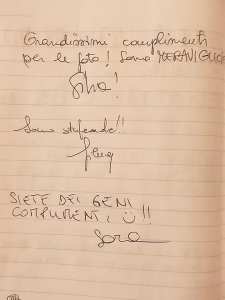 Grandissimi complimenti
per le foto! Sono MERAVIGLIOSE
Silvia!
Sono stupende!!
SIETE DEI GENI
COMPLIMENTI, ☺!!
Sara